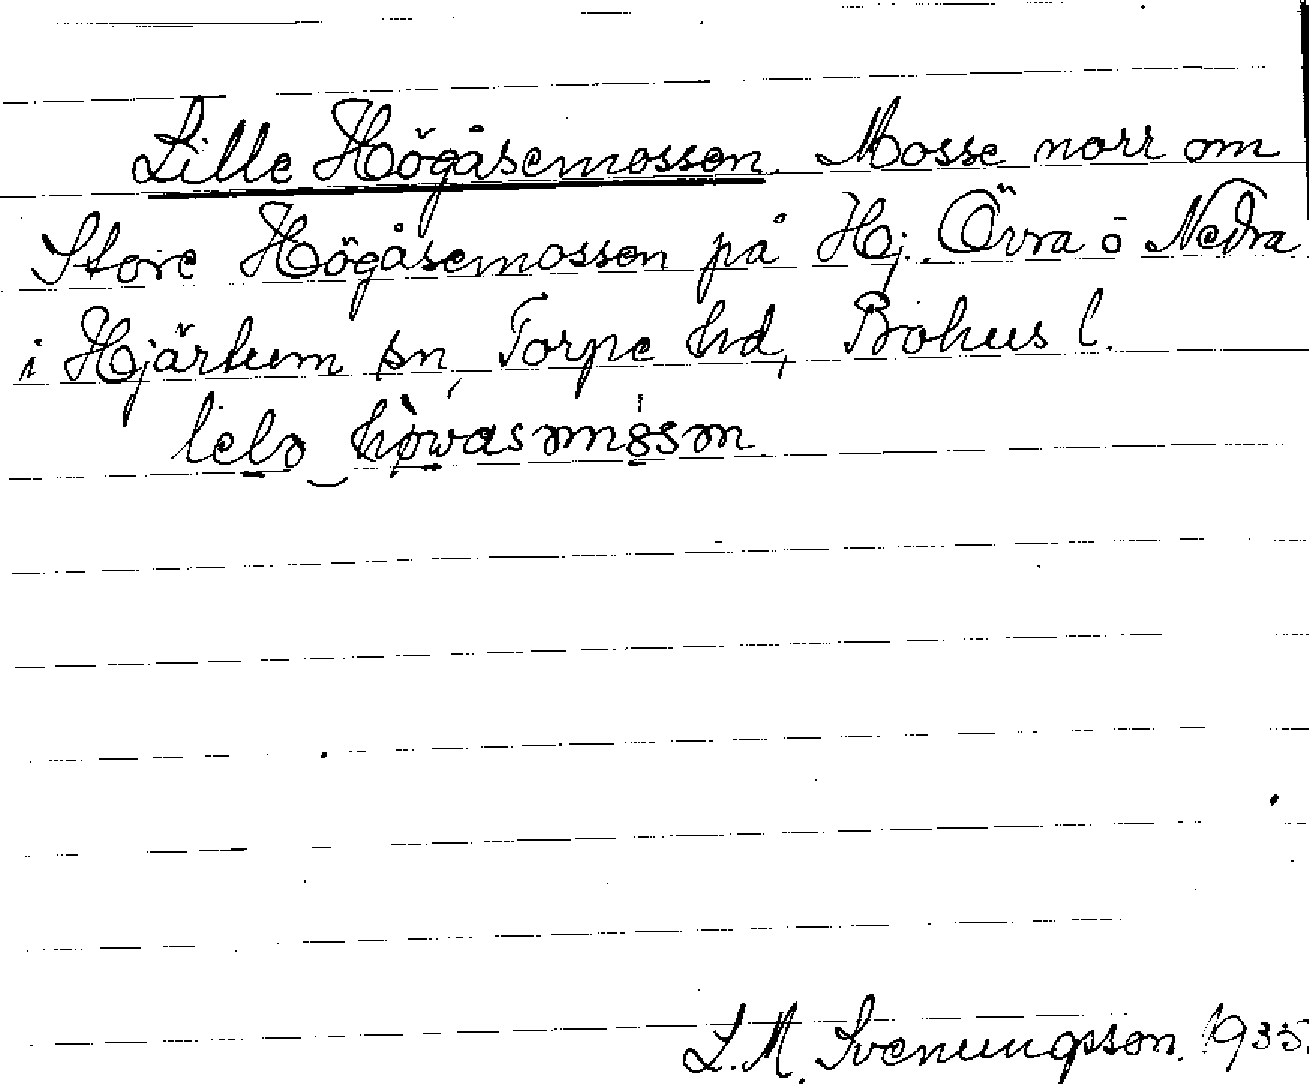 Lille Högåsemossen. Mosse norr om
Store Högåsemossen på Hj. Övra o Nedra
i Hjärtum sn, Torpe hd, Bohus l.
L. M. Svenungsson. 1935.